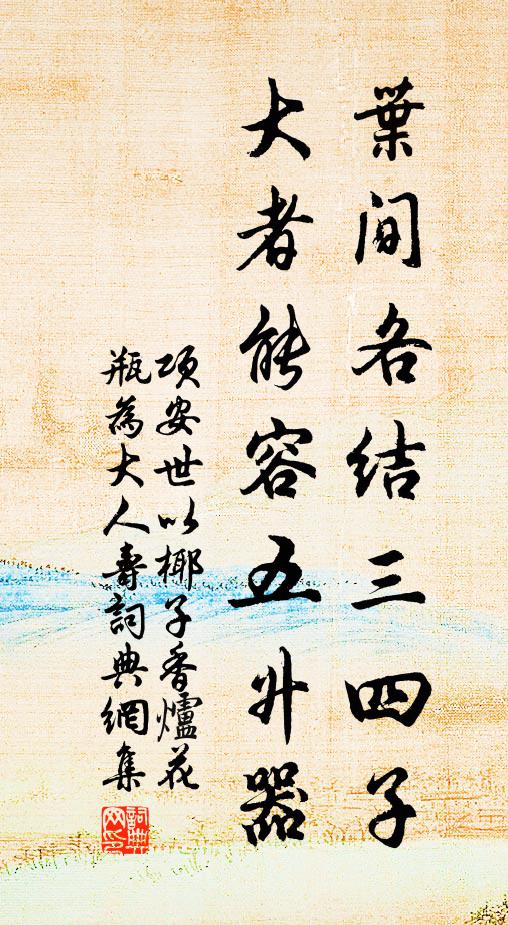 葉間各結三四子
大者能容五升器
項安世以椰子香爐花
瓶為大人壽詞典網集
詞典網印